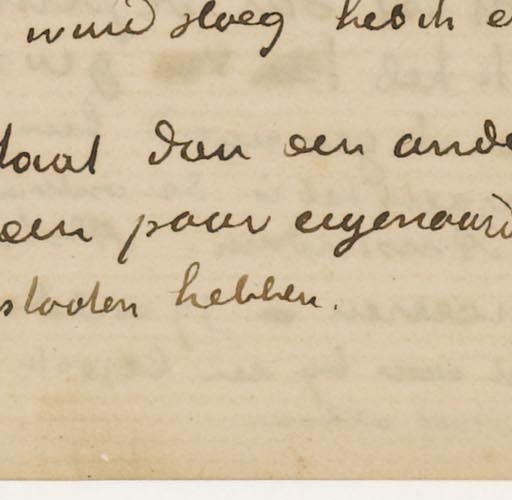 wind sloeg heb ik e
taal dan een ande
een paar eigenaard
sloten hebben.